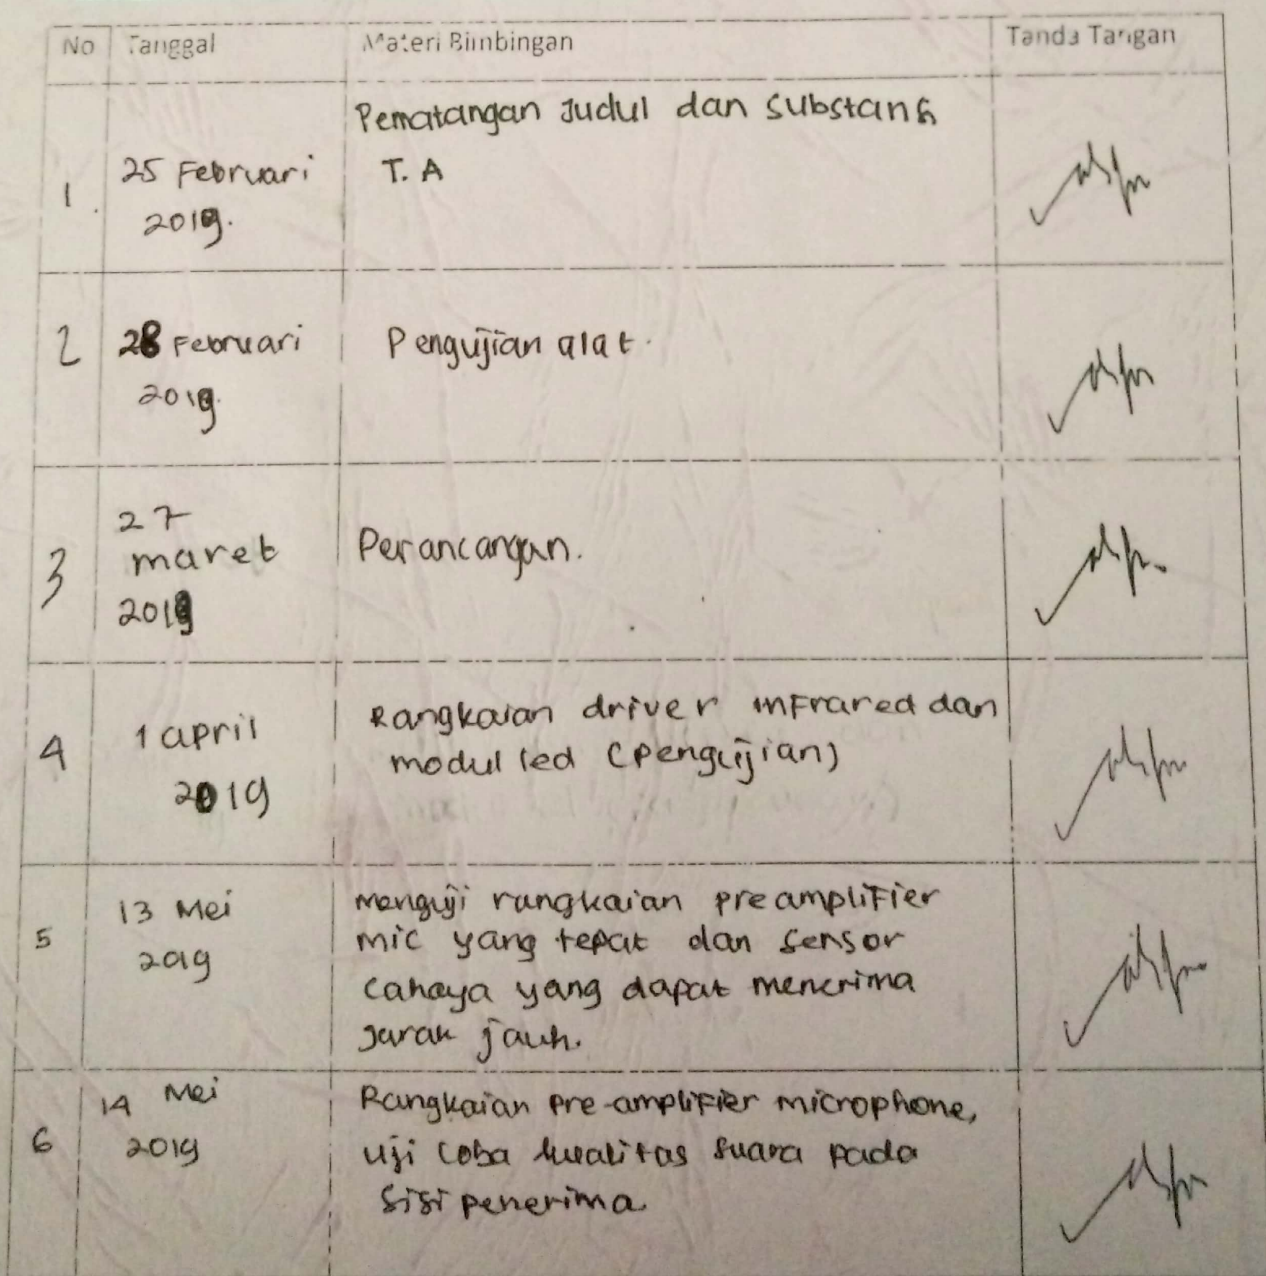 No Tanggal Materi Bimbingan Tanda Tangan
Pematangan Judul dan Substansi
1. 25 Februari T. A
2019.
2 28 Februari Pengujian alat.
2019.
27
3 maret Perancangan.
2019
4 1 april Rangkaian driver infrared dan
2019 modul led (pengujian)
5 13 Mei menguji rangkaian preamplifier
2019 mic yang tepat dan sensor
cahaya yang dapat menerima
Jarak jauh.
6 14 Mei Rangkaian pre-amplifier microphone,
2019 uji coba kualitas suara pada
sisi penerima